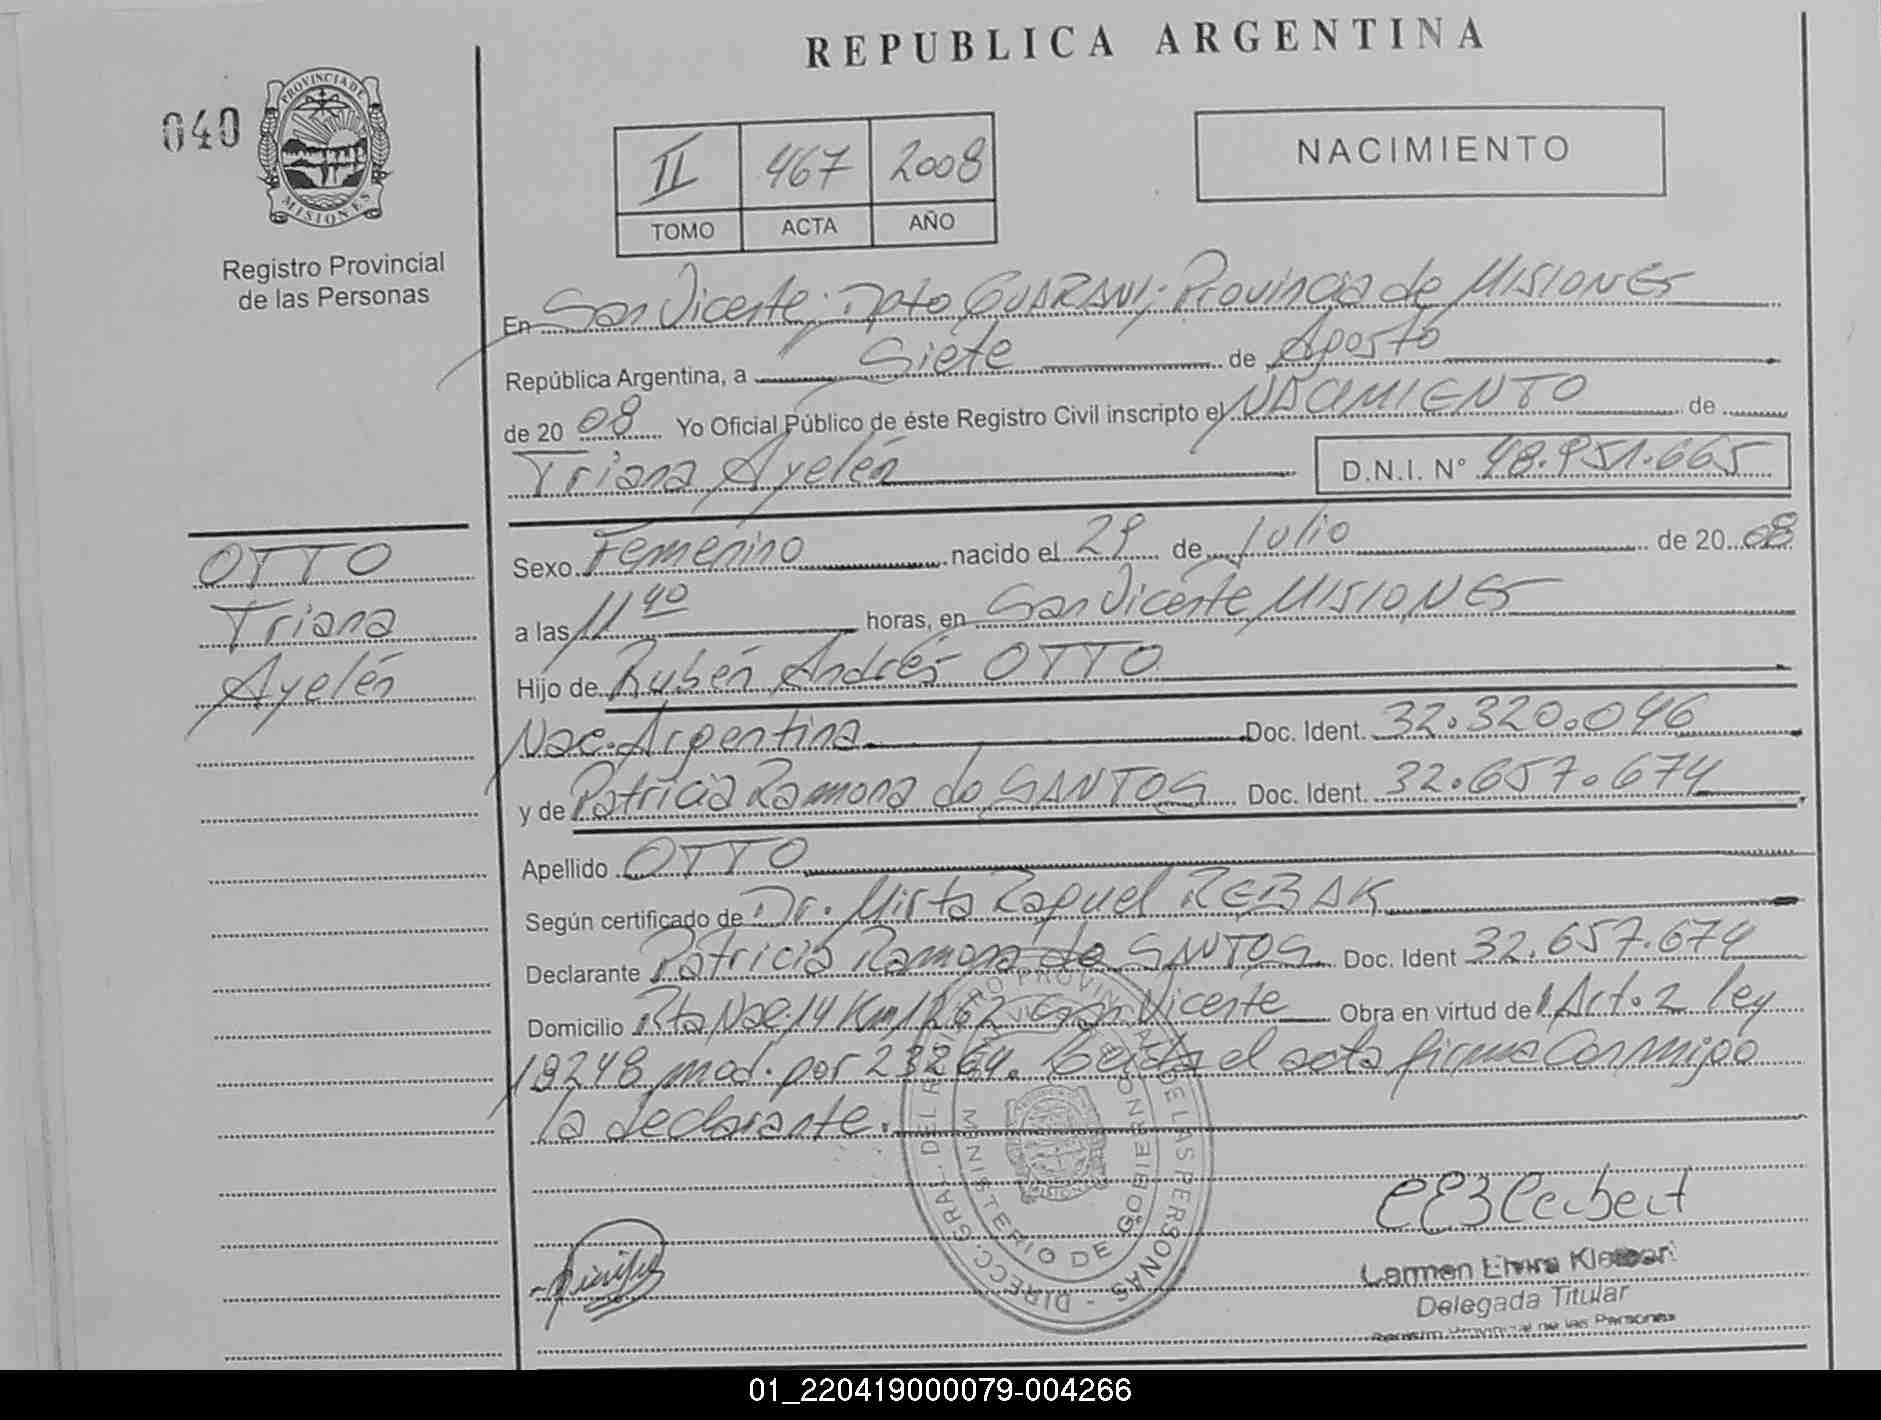 REPUBLICA ARGENTINA
040
PROVINCIA DE
MISIONES
Registro Provincial
de las Personas
II 467 2008
TOMO ACTA AÑO
NACIMIENTO
En San Vicente; Dpto GUARANI; Provincia de MISIONES
República Argentina, a Siete de Agosto
de 2008 Yo Oficial Público de éste Registro Civil inscripto el NACIMIENTO de
Triana Ayelén D.N.I. N° 48.951.665
OTTO
Triana
Ayelén
Sexo Femenino nacido el 29 de Julio de 2008
a las 11 40 horas, en San Vicente MISIONES
Hijo de Rubén Andrés OTTO
Nac. Argentina Doc. Ident. 32.320.046
y de Patricia Ramona do SANTOS Doc. Ident. 32.657.674
Apellido OTTO
Según certificado de Dr. Mirta Raquel REBAK
Declarante Patricia Ramona do SANTOS Doc. Ident 32.657.674
Domicilio Rta Nac. 14 Km 1262 San Vicente Obra en virtud de Art. 2 ley
18248 mod. por 23264. Leida el acta firma Conmigo
la declarante.
DIRECC. GRAL. DEL REGISTRO PROVINCIAL DE LAS PERSONAS
MINISTERIO DE GOBIERNO
Carmen Elvira
Delegada Titular
Registro Provincial de las Personas
01_220419000079-004266